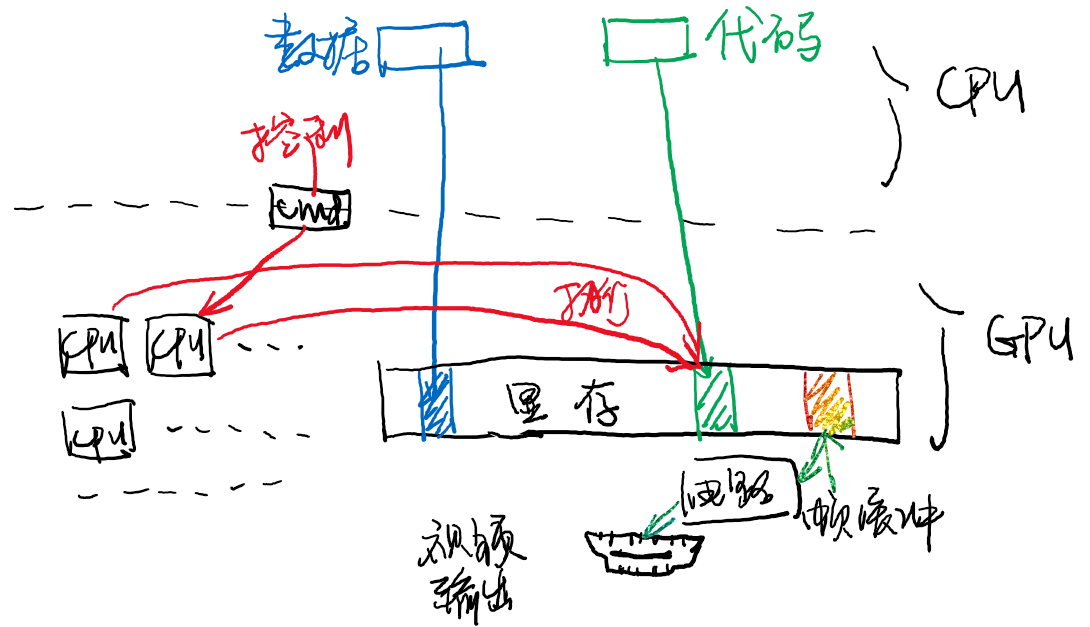 数据
代码
CPU
控制
cmd
执行
GPU
CPU
CPU
显存
CPU
电路
帧缓冲
视频
输出